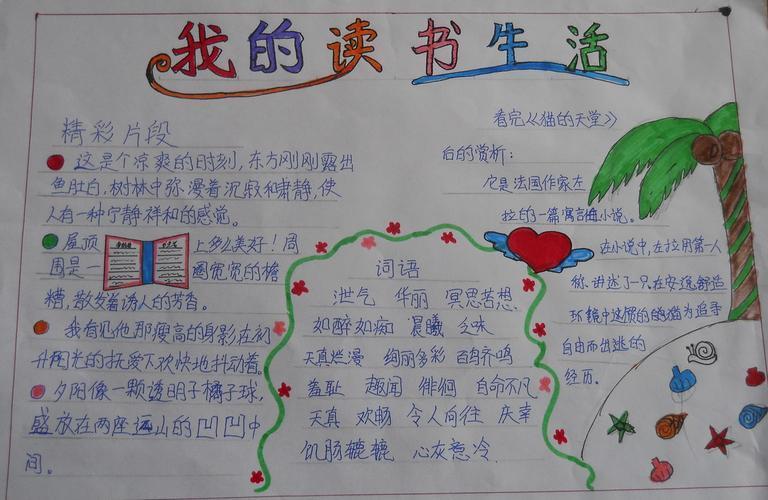 我的读书生活
精彩片段
这是个凉爽的时刻,东方刚刚露出
鱼肚白,树林中弥漫着沉寂和肃静,使
人有一种宁静祥和的感觉。
屋顶上多么美好!周
围是一圈宽宽的檐
槽,散发着诱人的芳香。
我看见他那瘦高的身影在初
升阳光的抚爱下欢快地抖动着。
夕阳像一颗透明子橘子球,
盛放在两座远山的凹凹中
间。
词语
泄气 华丽 冥思苦想
如醉如痴 晨曦 乏味
天真烂漫 绚丽多彩 百鸟齐鸣
羞耻 趣闻 徘徊 自命不凡
天真 欢畅 令人向往 庆幸
饥肠辘辘 心灰意冷
看完《猫的天堂》
后的赏析:
它是法国作家左
拉的一篇寓言小说。
在小说中,左拉用第一人
称,讲述了一只在安逸舒适
环境中的猫为追寻
自由而出逃的
经历。